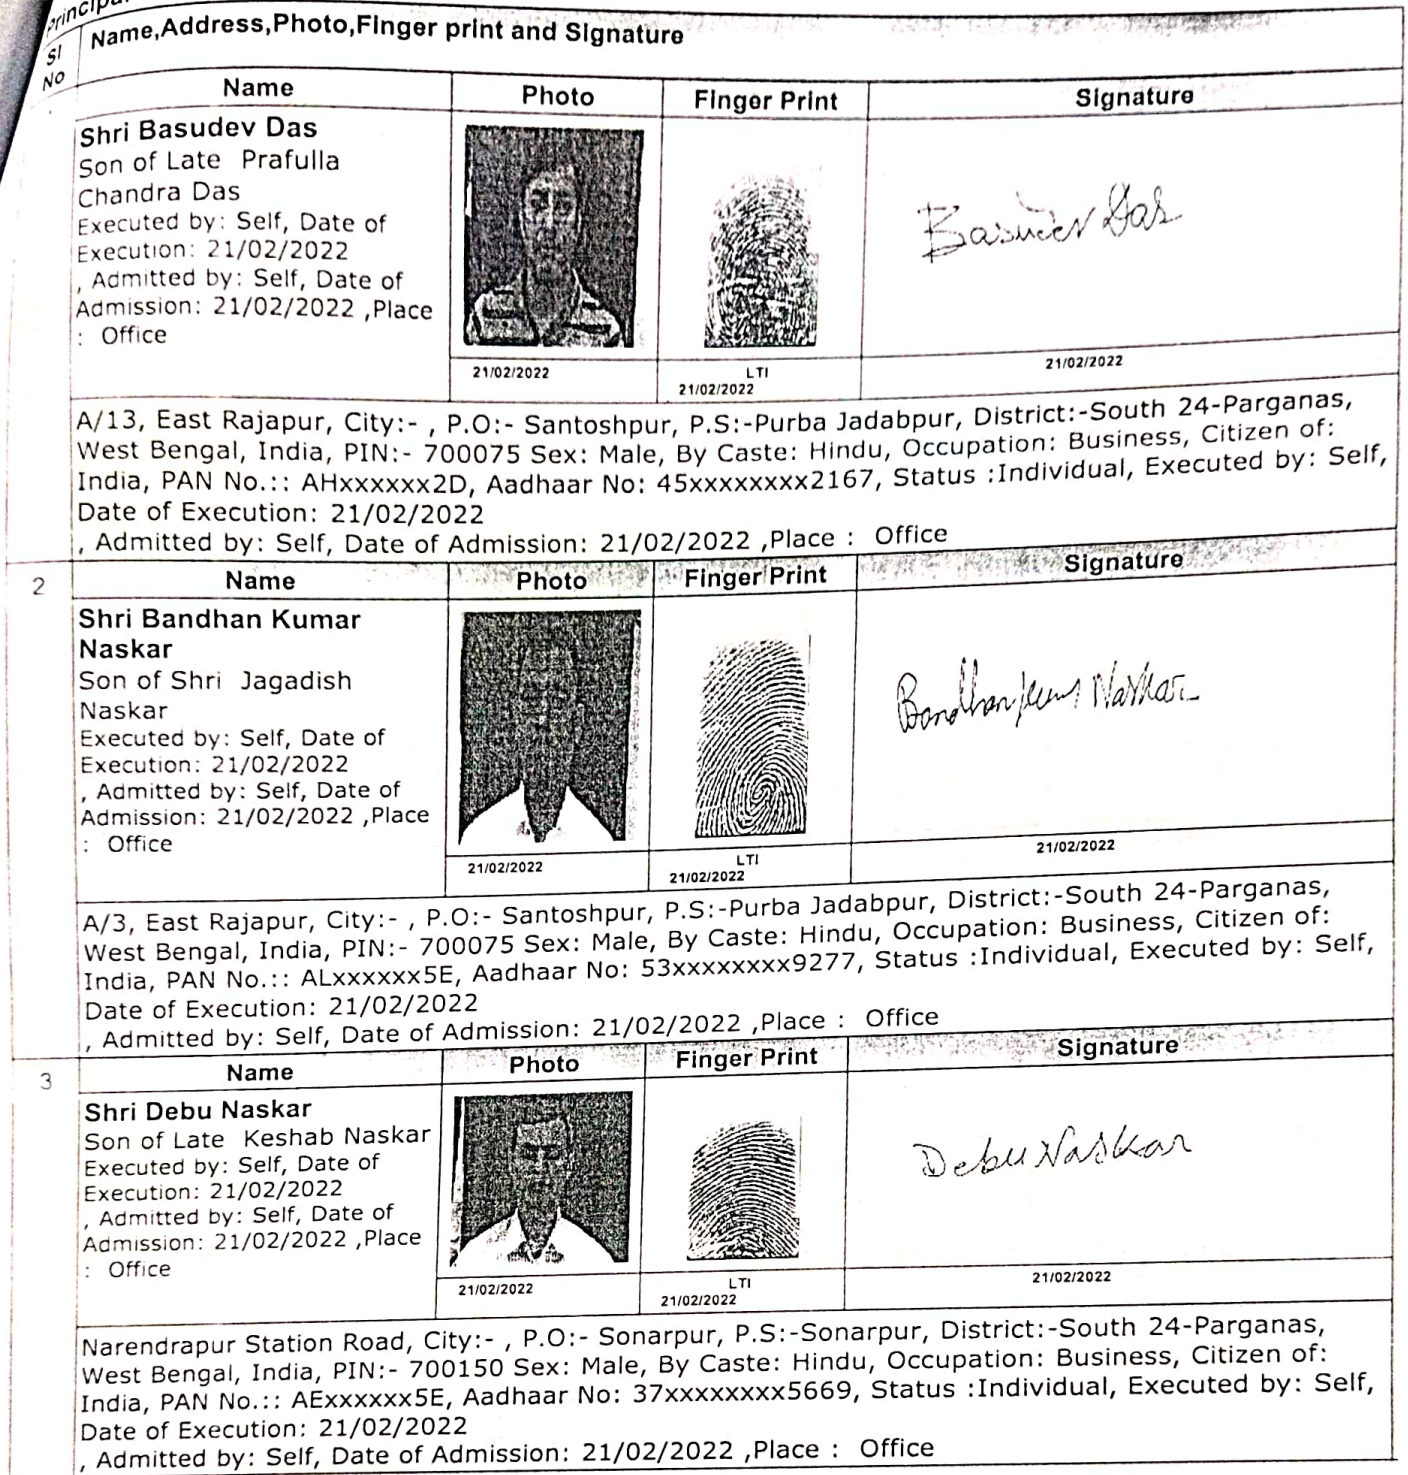 Principal
Sl
No
Name,Address,Photo,Finger print and Signature
Name Photo Finger Print Signature
Shri Basudev Das
Son of Late Prafulla
Chandra Das
Executed by: Self, Date of
Execution: 21/02/2022
, Admitted by: Self, Date of
Admission: 21/02/2022 ,Place
: Office
Basudev Das
21/02/2022 LTI 21/02/2022
21/02/2022
A/13, East Rajapur, City:- , P.O:- Santoshpur, P.S:-Purba Jadabpur, District:-South 24-Parganas,
West Bengal, India, PIN:- 700075 Sex: Male, By Caste: Hindu, Occupation: Business, Citizen of:
India, PAN No.:: AHxxxxxx2D, Aadhaar No: 45xxxxxxxx2167, Status :Individual, Executed by: Self,
Date of Execution: 21/02/2022
, Admitted by: Self, Date of Admission: 21/02/2022 ,Place : Office
2 Name Photo Finger Print Signature
Shri Bandhan Kumar
Naskar
Son of Shri Jagadish
Naskar
Executed by: Self, Date of
Execution: 21/02/2022
, Admitted by: Self, Date of
Admission: 21/02/2022 ,Place
: Office
Bandhan Naskar
21/02/2022 LTI 21/02/2022
21/02/2022
A/3, East Rajapur, City:- , P.O:- Santoshpur, P.S:-Purba Jadabpur, District:-South 24-Parganas,
West Bengal, India, PIN:- 700075 Sex: Male, By Caste: Hindu, Occupation: Business, Citizen of:
India, PAN No.:: ALxxxxxx5E, Aadhaar No: 53xxxxxxxx9277, Status :Individual, Executed by: Self,
Date of Execution: 21/02/2022
, Admitted by: Self, Date of Admission: 21/02/2022 ,Place : Office
3 Name Photo Finger Print Signature
Shri Debu Naskar
Son of Late Keshab Naskar
Executed by: Self, Date of
Execution: 21/02/2022
, Admitted by: Self, Date of
Admission: 21/02/2022 ,Place
: Office
Debu Naskar
21/02/2022 LTI 21/02/2022
21/02/2022
Narendrapur Station Road, City:- , P.O:- Sonarpur, P.S:-Sonarpur, District:-South 24-Parganas,
West Bengal, India, PIN:- 700150 Sex: Male, By Caste: Hindu, Occupation: Business, Citizen of:
India, PAN No.:: AExxxxxx5E, Aadhaar No: 37xxxxxxxx5669, Status :Individual, Executed by: Self,
Date of Execution: 21/02/2022
, Admitted by: Self, Date of Admission: 21/02/2022 ,Place : Office